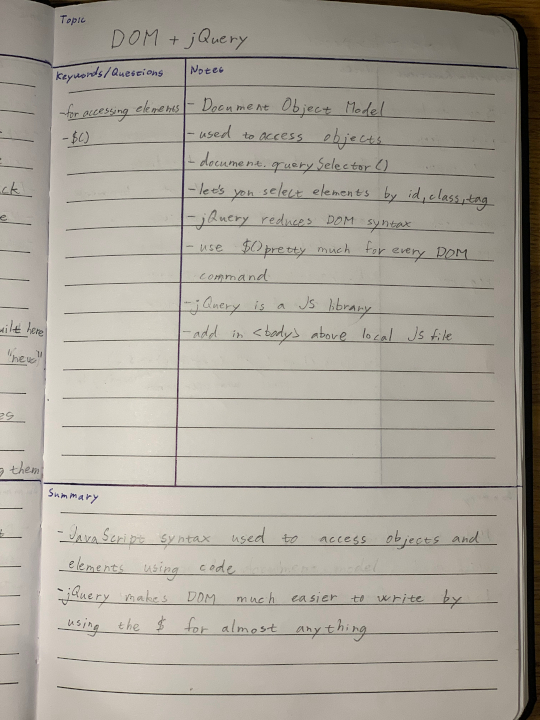 Topic
DOM + jQuery
Keywords/Questions
- for accessing elements
- $()
Notes
- Document Object Model
- used to access objects
- document.querySelector()
- let's you select elements by id, class, tag
- jQuery reduces DOM syntax
- use $() pretty much for every DOM
command
- jQuery is a JS library
- add in <body> above local JS file
Summary
- JavaScript syntax used to access objects and
elements using code
- jQuery makes DOM much easier to write by
using the $ for almost anything
ck
e
uilt here
"new"
es
g them